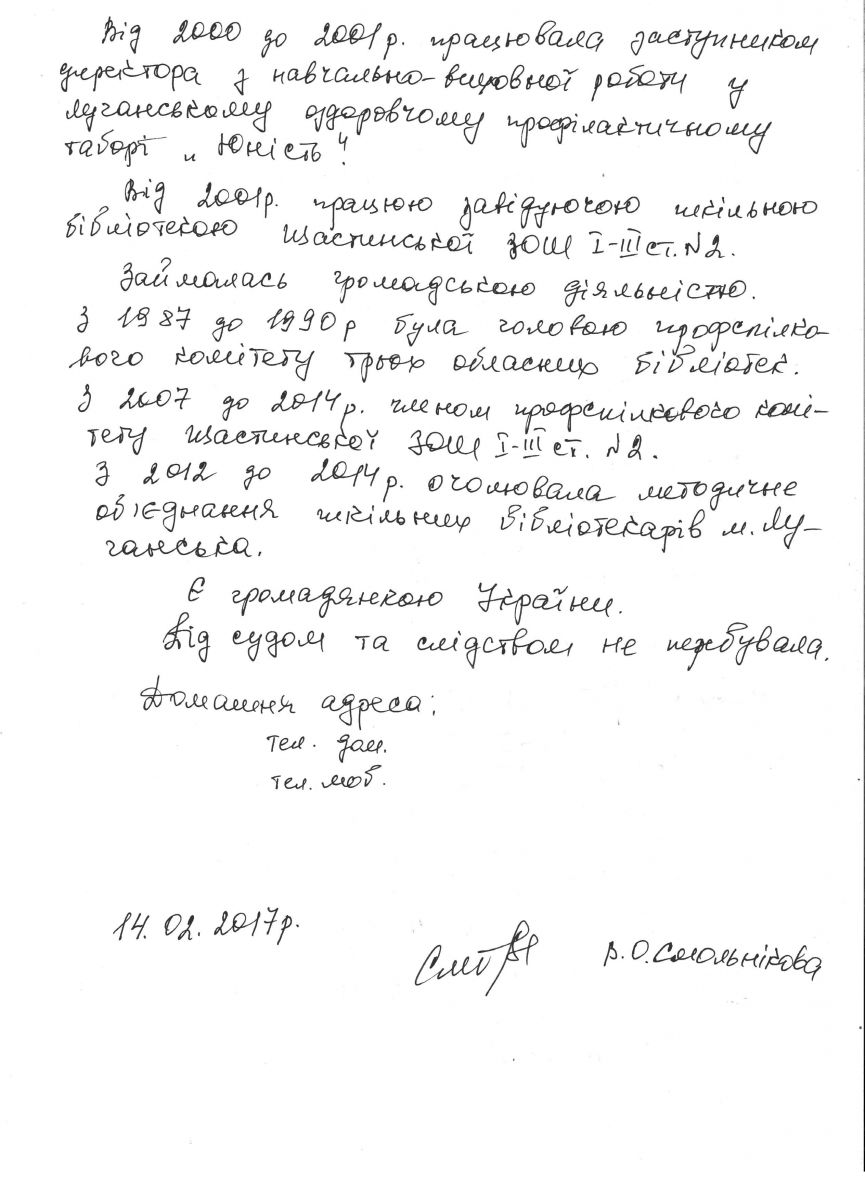 Від 2000 до 2001р. працювала заступником
директора з навчально-виховної роботи у
Луганському оздоровчому профілактичному
таборі „Юність“.
Від 2001р. працюю завідуючою шкільною
бібліотекою Щастинської ЗОШ І-ІІІ ст. №2.
Займалась громадською діяльністю.
З 1987 до 1990р була головою профспілко-
вого комітету трьох обласних бібліотек.
З 2007 до 2014р. членом профспілкового комі-
тету Щастинської ЗОШ І-ІІІ ст. №2.
З 2012 до 2014р. очолювала методичне
об'єднання шкільних бібліотекарів м. Лу-
ганська.
Є громадянкою України.
Під судом та слідством не перебувала.
Домашня адреса:
тел. дом.
тел. моб.
14.02.2017р.
В.О.Смольнікова